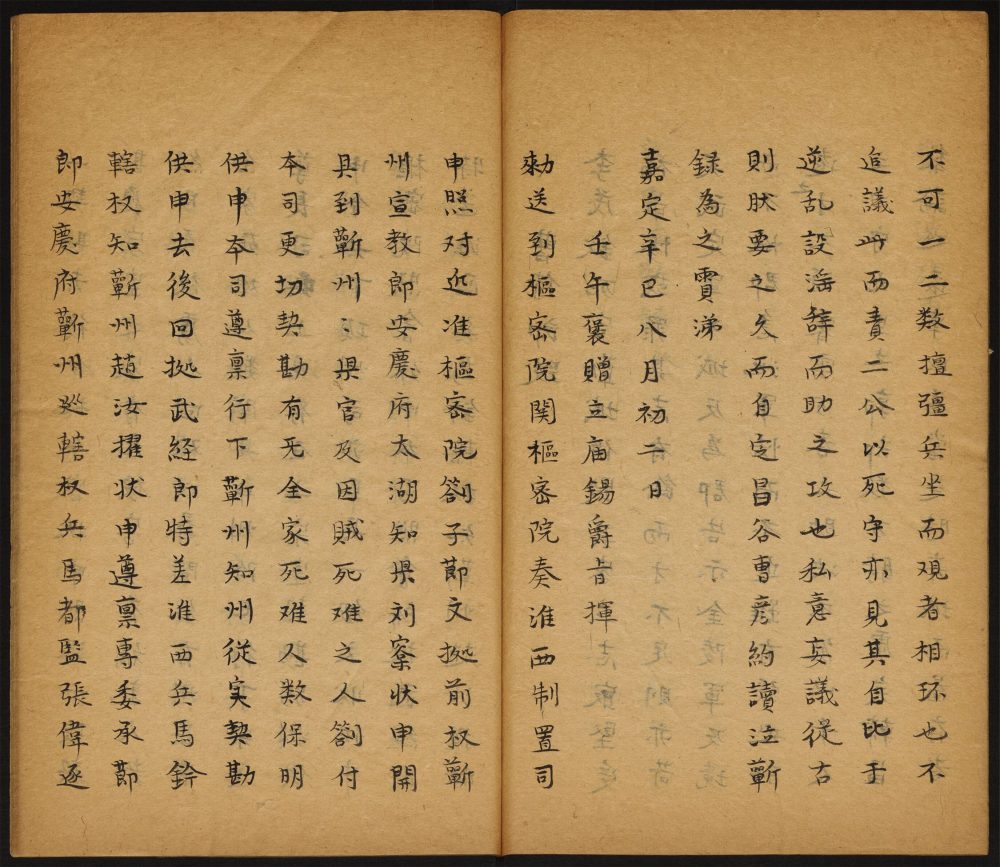 不可一二数擅彊兵坐而观者相环也不
追議此而責二公以死守亦見其自比于
逆乱設淫辞而助之攻也私意妄議從古
則肰要之久而自定昌谷曹彦約讀泣蘄
録為之霣涕
嘉定辛巳八月初一日
壬午褒贈立庙錫爵㫖揮
勑送到樞密院関樞密院奏淮西制置司
申照对近准樞密院劄子節文拠前权蘄
州宣教郎安慶府太湖知県刘寀状申開
具到蘄州三県官及因賊死难之人劄付
本司更切契勘有无全家死难人数保明
供申本司遵稟行下蘄州知州從实契勘
供申去後回拠武経郎特差淮西兵馬鈐
轄权知蘄州趙汝擢状申遵稟專委承節
郎安慶府蘄州巡轄权兵馬都監張偉逐